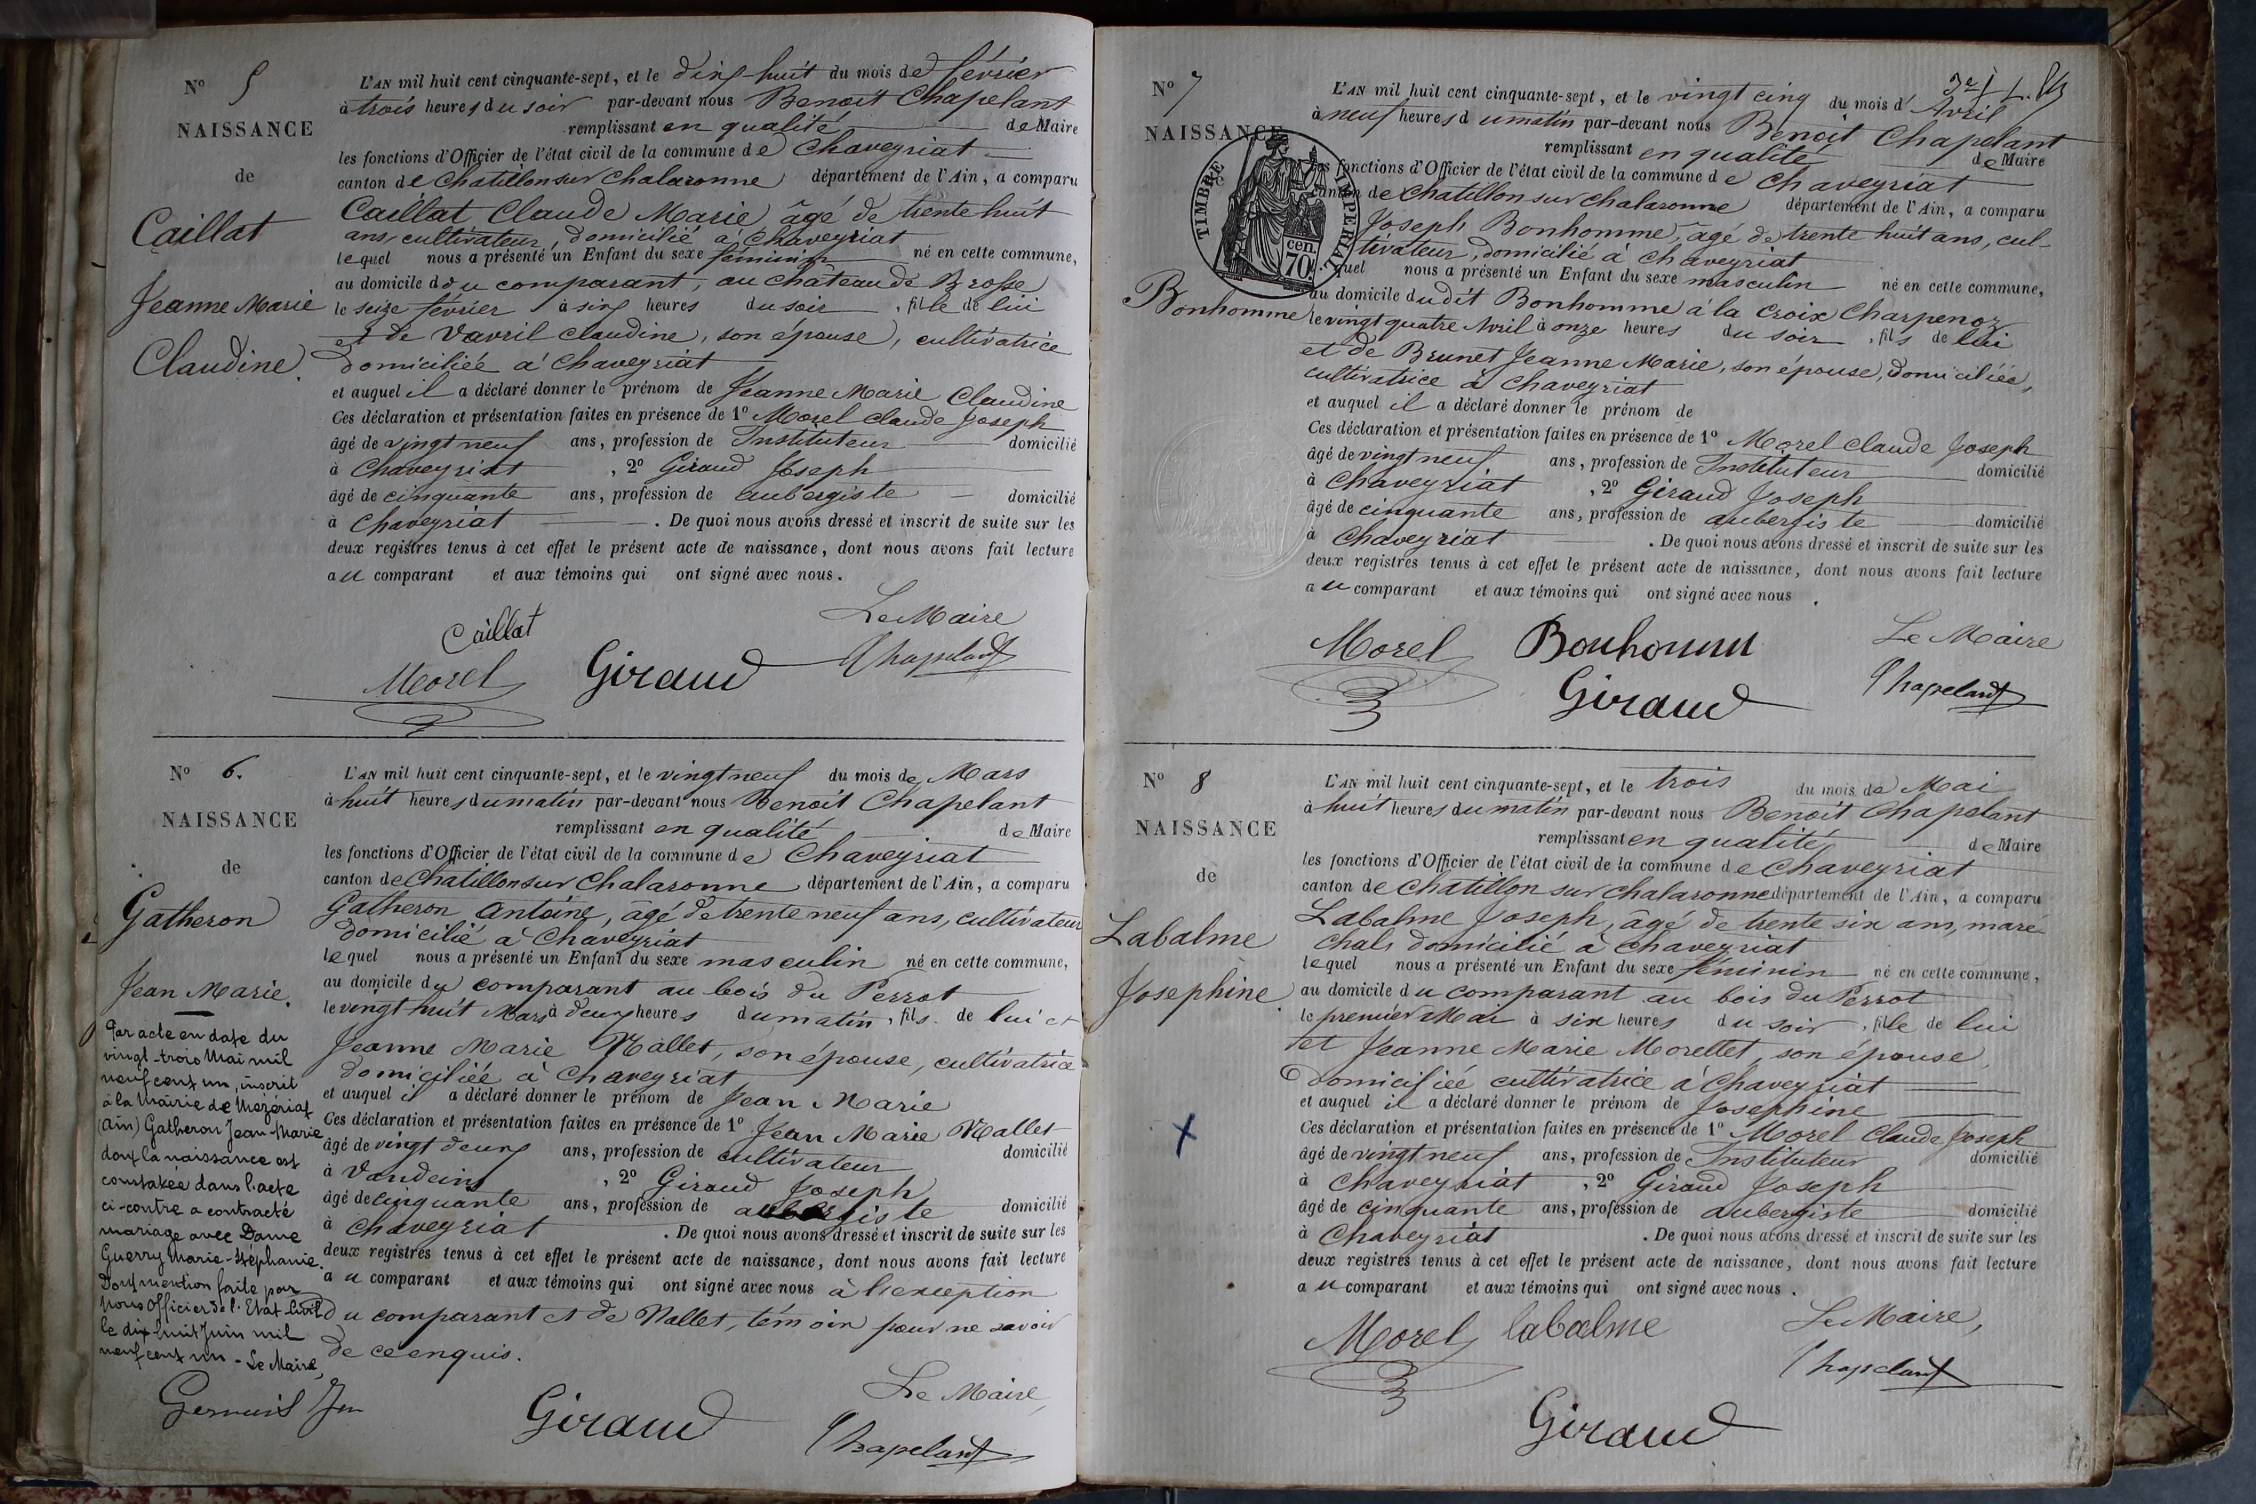 N° 5
NAISSANCE
de
Caillat
Jeanne Marie
Claudine.
L'AN mil huit cent cinquante-sept, et le dix huit du mois de février
à trois heures du soir par-devant nous Benoit Chapelant
remplissant en qualité de Maire
les fonctions d'Officier de l'état civil de la commune de Chaveyriat
canton de Chatillon sur Chalaronne département de l'Ain, a comparu
Caillat Claude Marie âgé de trente huit
ans, cultivateur, domicilié à Chaveyriat
lequel nous a présenté un Enfant du sexe féminin né en cette commune,
au domicile du comparant, au château de Brosse
le seize février à six heures du soir, fille de lui
et de Vavril Claudine, son épouse, cultivatrice
domiciliée à Chaveyriat
et auquel il a déclaré donner le prénom de Jeanne Marie Claudine
Ces déclaration et présentation faites en présence de 1° Morel Claude Joseph
âgé de vingt neuf ans, profession de Instituteur domicilié
à Chaveyriat, 2° Giraud Joseph
âgé de cinquante ans, profession de aubergiste domicilié
à Chaveyriat. De quoi nous avons dressé et inscrit de suite sur les
deux registres tenus à cet effet le présent acte de naissance, dont nous avons fait lecture
au comparant et aux témoins qui ont signé avec nous.
Le Maire
Caillat
Morel Giraud Chapelant
N° 6.
NAISSANCE
de
Gatheron
Jean Marie.
Par acte en date du
vingt-trois Mai mil
neuf cent un, inscrit
à la Mairie de Mézériat
(Ain) Gatheron Jean-Marie
dont la naissance est
constatée dans l'acte
ci-contre a contracté
mariage avec Dame
Guerry Marie-Stéphanie.
Dont mention faite par
Nous Officier de l'Etat Civil
le dix huit Juin mil
neuf cent un - Le Maire,
L'AN mil huit cent cinquante-sept, et le vingt neuf du mois de Mars
à huit heures du matin par-devant nous Benoit Chapelant
remplissant en qualité de Maire
les fonctions d'Officier de l'état civil de la commune de Chaveyriat
canton de Chatillon sur Chalaronne département de l'Ain, a comparu
Gatheron Antoine, âgé de trente neuf ans, cultivateur
domicilié à Chaveyriat
lequel nous a présenté un Enfant du sexe masculin né en cette commune,
au domicile du comparant au bois du Perrot
le vingt huit Mars à deux heures du matin, fils de lui et
Jeanne Marie Mallet, son épouse, cultivatrice
domiciliée à Chaveyriat
et auquel il a déclaré donner le prénom de Jean Marie
Ces déclaration et présentation faites en présence de 1° Jean Marie Mallet
âgé de vingt deux ans, profession de cultivateur domicilié
à Vandeins, 2° Giraud Joseph
âgé de cinquante ans, profession de aubergiste domicilié
à Chaveyriat. De quoi nous avons dressé et inscrit de suite sur les
deux registres tenus à cet effet le présent acte de naissance, dont nous avons fait lecture
au comparant et aux témoins qui ont signé avec nous à l'exception
du comparant et de Mallet, témoin pour ne savoir
de ce enquis.
Le Maire,
Giraud Chapelant
N° 7
NAISSANCE
TIMBRE IMPERIAL
70 cen.
Bonhomme
L'AN mil huit cent cinquante-sept, et le vingt cinq du mois d'Avril
à neuf heures du matin par-devant nous Benoit Chapelant
remplissant en qualité de Maire
les fonctions d'Officier de l'état civil de la commune de Chaveyriat
canton de Chatillon sur Chalaronne département de l'Ain, a comparu
Joseph Bonhomme, âgé de trente huit ans, cul-
tivateur, domicilié à Chaveyriat
lequel nous a présenté un Enfant du sexe masculin né en cette commune,
au domicile dudit Bonhomme à la Croix Charpenoz
le vingt quatre Avril à onze heures du soir, fils de lui
et de Brunet Jeanne Marie, son épouse, domiciliée,
cultivatrice à Chaveyriat
et auquel il a déclaré donner le prénom de
Ces déclaration et présentation faites en présence de 1° Morel Claude Joseph
âgé de vingt neuf ans, profession de Instituteur domicilié
à Chaveyriat, 2° Giraud Joseph
âgé de cinquante ans, profession de aubergiste domicilié
à Chaveyriat. De quoi nous avons dressé et inscrit de suite sur les
deux registres tenus à cet effet le présent acte de naissance, dont nous avons fait lecture
au comparant et aux témoins qui ont signé avec nous.
Morel Bonhomme Le Maire
Giraud Chapelant
N° 8
NAISSANCE
de
Labalme
Josephine.
L'AN mil huit cent cinquante-sept, et le trois du mois de Mai
à huit heures du matin par-devant nous Benoit Chapelant
remplissant en qualité de Maire
les fonctions d'Officier de l'état civil de la commune de Chaveyriat
canton de Chatillon sur Chalaronne département de l'Ain, a comparu
Labalme Joseph, âgé de trente six ans, maré-
chal, domicilié à Chaveyriat
lequel nous a présenté un Enfant du sexe féminin né en cette commune,
au domicile du comparant au bois du Perrot
le premier Mai à six heures du soir, fille de lui
et Jeanne Marie Morellet, son épouse,
domiciliée cultivatrice à Chaveyriat
et auquel il a déclaré donner le prénom de Josephine
Ces déclaration et présentation faites en présence de 1° Morel Claude Joseph
âgé de vingt neuf ans, profession de Instituteur domicilié
à Chaveyriat, 2° Giraud Joseph
âgé de cinquante ans, profession de aubergiste domicilié
à Chaveyriat. De quoi nous avons dressé et inscrit de suite sur les
deux registres tenus à cet effet le présent acte de naissance, dont nous avons fait lecture
au comparant et aux témoins qui ont signé avec nous.
Morel Labalme Le Maire,
Chapelant
Giraud